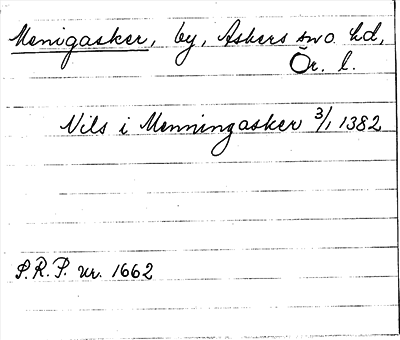 Menigasker, by, Askers sno. hd,
Ör. l.
Nils i Menningasker 3/1 1382
S.R.P. nr. 1662